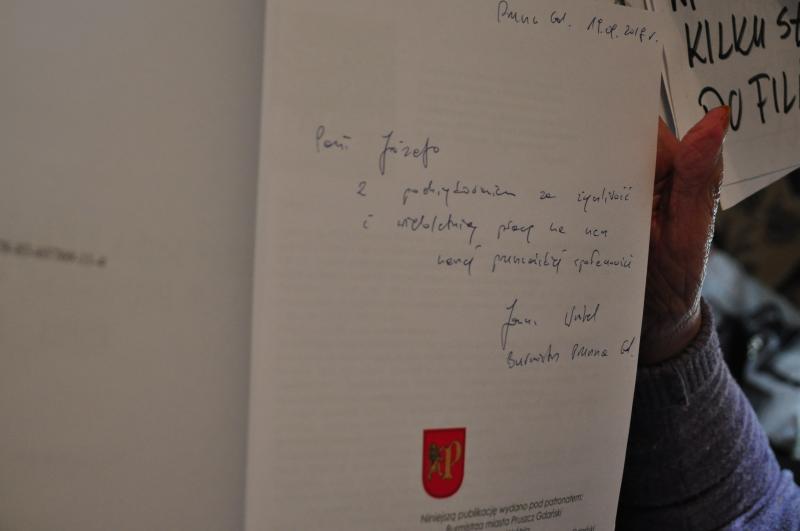 Pruszcz Gd. 19.09.2018 r.
KILKU
DO FIL
Pani Józefo
z podziękowaniem za życzliwość
i wieloletnią pracę na rzecz
naszej pruszczańskiej społeczności
Burmistrz Pruszcza Gd.
Niniejszą publikację wydano pod patronatem:
Burmistrza miasta Pruszcz Gdański